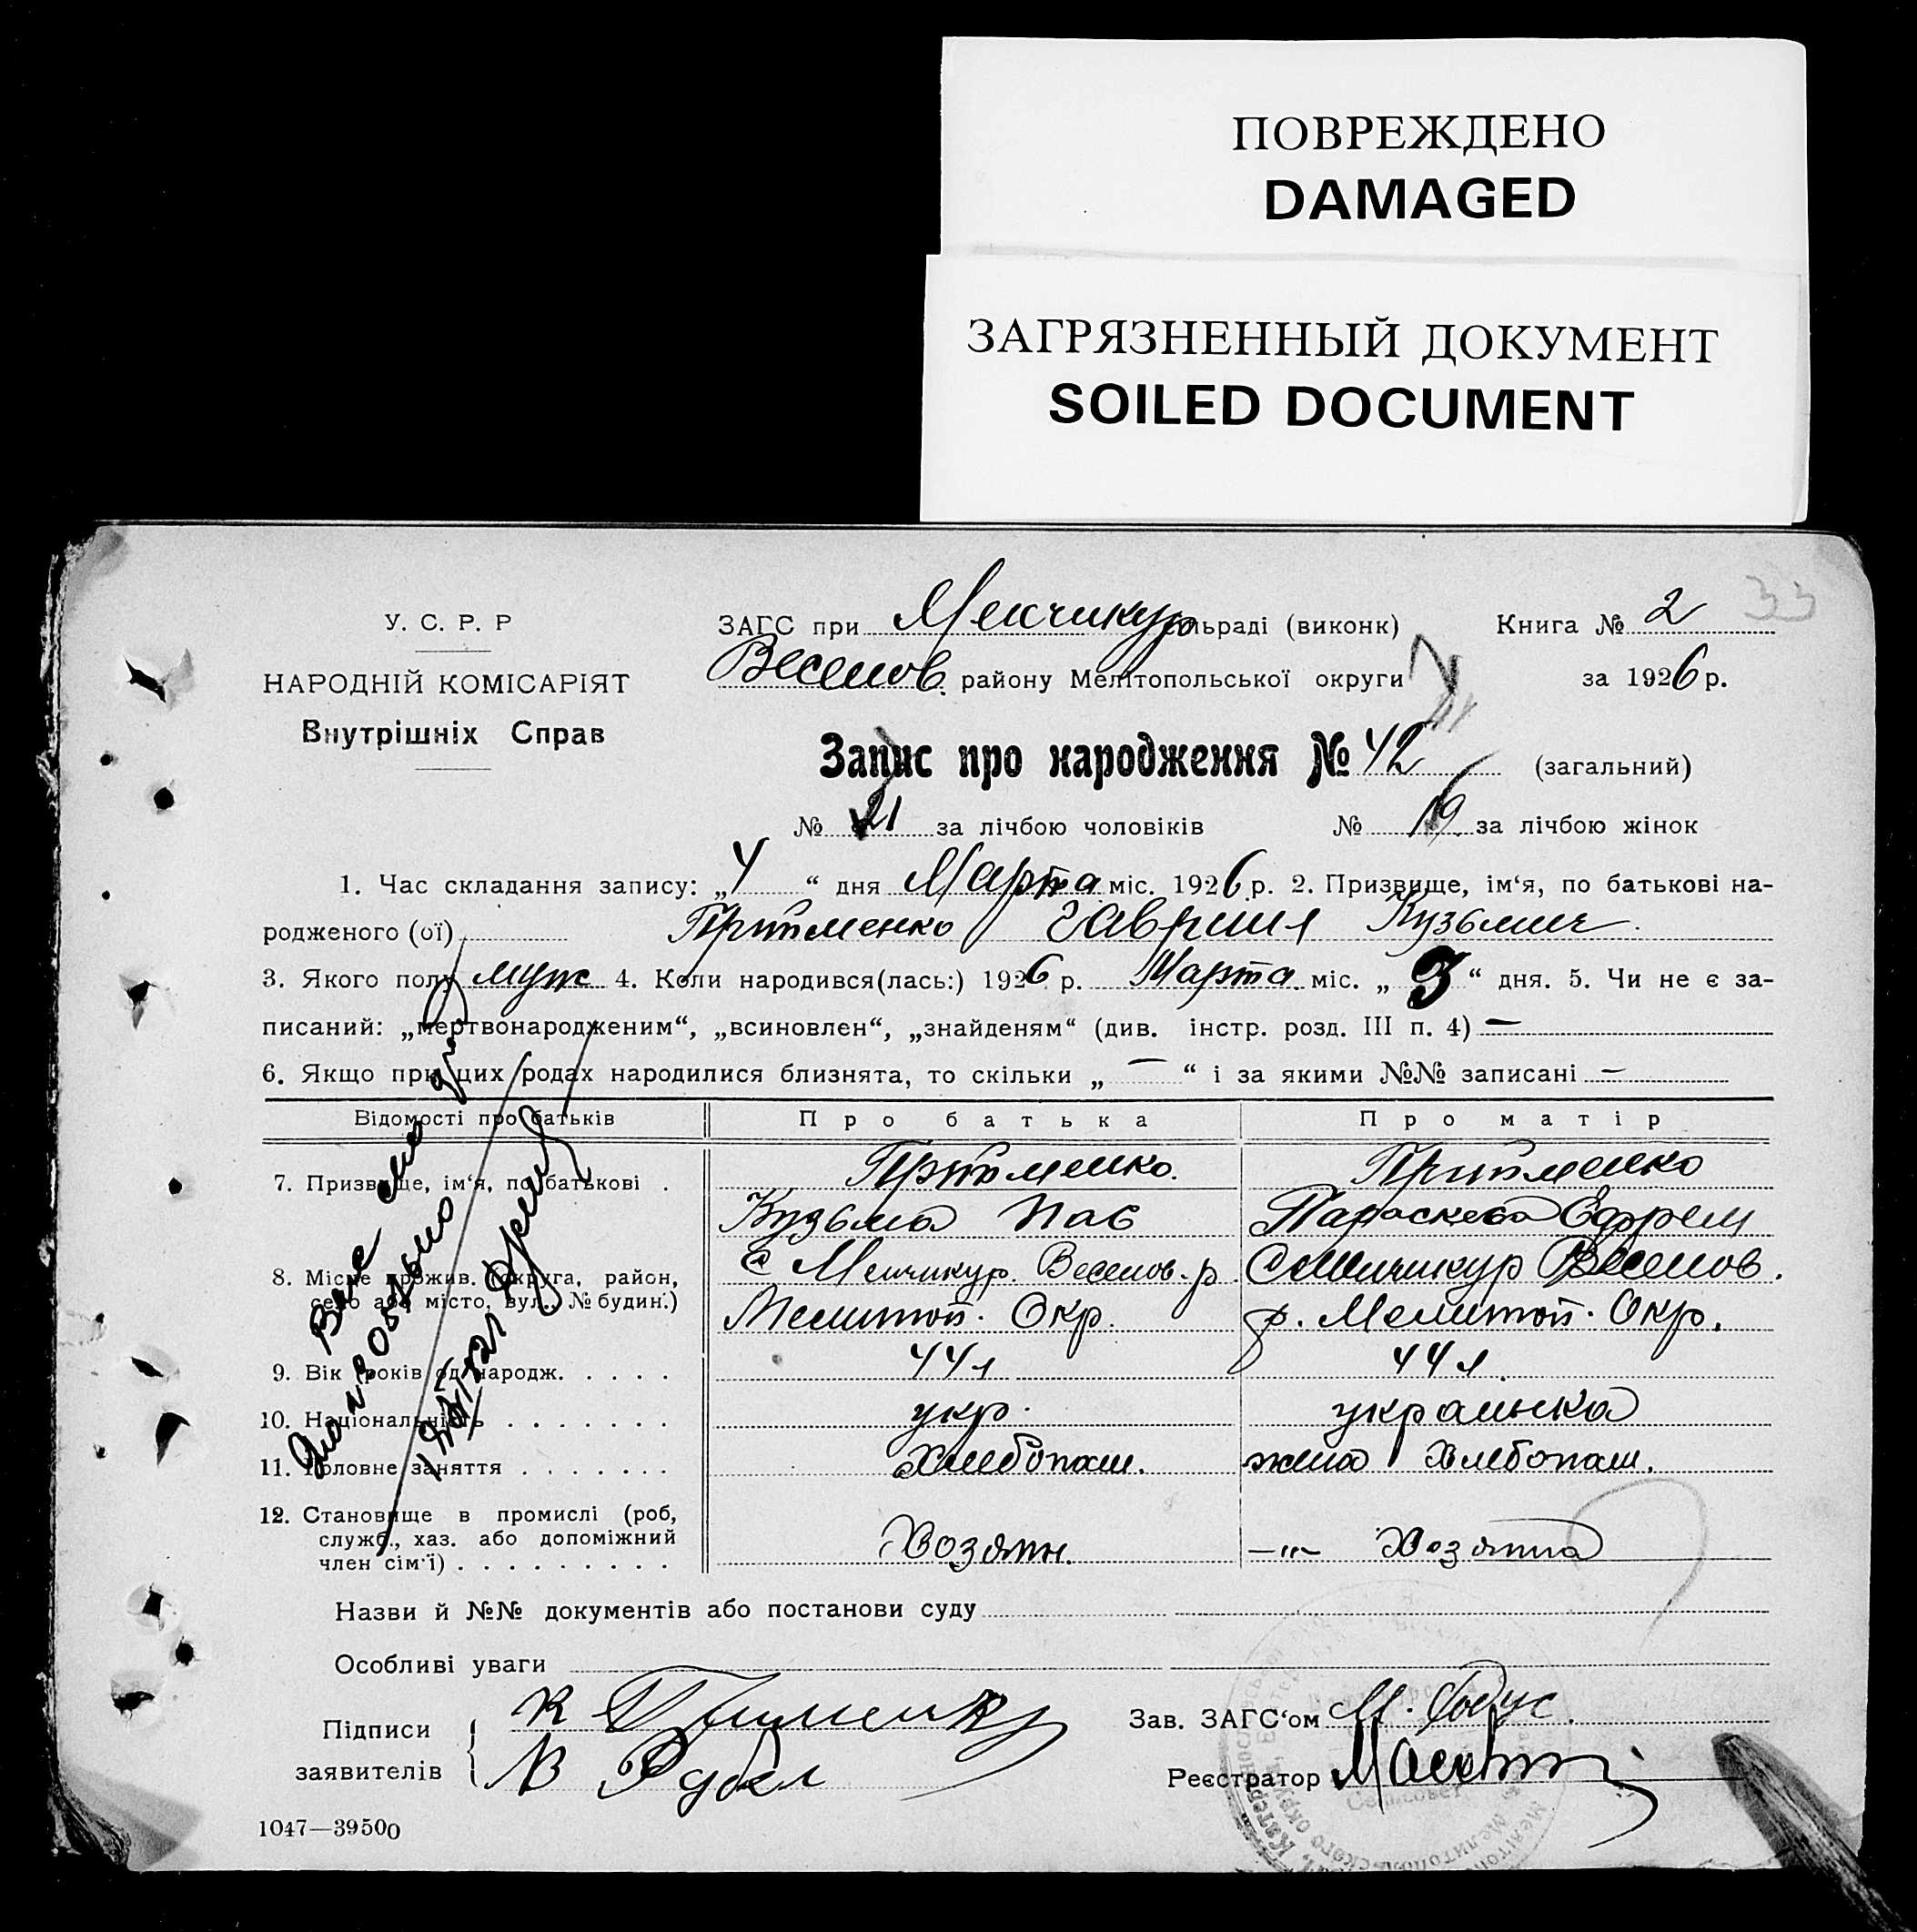 ПОВРЕЖДЕНО
DAMAGED
ЗАГРЯЗНЕННЫЙ ДОКУМЕНТ
SOILED DOCUMENT
33
У. С. Р. Р
НАРОДНІЙ КОМІСАРІЯТ
Внутрішніх Справ
ЗАГС при Менчикур сільраді (виконк) Книга № 2
Веселов. району Мелітопольської округи за 1926 р.
Запис про народження № 42 (загальний)
№ 21 за лічбою чоловіків № 19 за лічбою жінок
1. Час складання запису: „4“ дня Марта міс. 1926 р. 2. Призвище, ім‘я, по батькові на-
родженого (ої) Гавриил Кузьмич
3. Якого полу муж 4. Коли народився(лась:) 1926 р. Марта міс. „3“ дня. 5. Чи не є за-
писаний: „мертвонародженим“, „всиновлен“, „знайденям“ (див. інстр. розд. III п. 4) —
6. Якщо при цих родах народилися близнята, то скільки „—“ і за якими №№ записані —
Відомості про батьків Про батька Про матір
7. Призвище, ім‘я, по батькові .
Кузьма Пав Параскева Ефрем
8. Місце прожив. (округа, район,
село або місто, вул., № будин.)
с Менчикур. Веселов. р. с Менчикур Веселов.
Мелитоп. Окр. р. Мелитоп. Окр.
9. Вік (років од народж. . . . . 44 л 44 л
10. Національність . . . . . . . укр. украинка
11. Головне заняття . . . . . . . Хлебопаш. жена Хлебопаш.
12. Становище в промислі (роб,
служб., хаз. або допоміжний
член сім‘ї) . . . . . . . . . Хозяин. —"— Хозяина
Назви й №№ документів або постанови суду
Особливі уваги
Підписи
заявителів
Зав. ЗАГС‘ом М.
Реєстратор
1047—39500